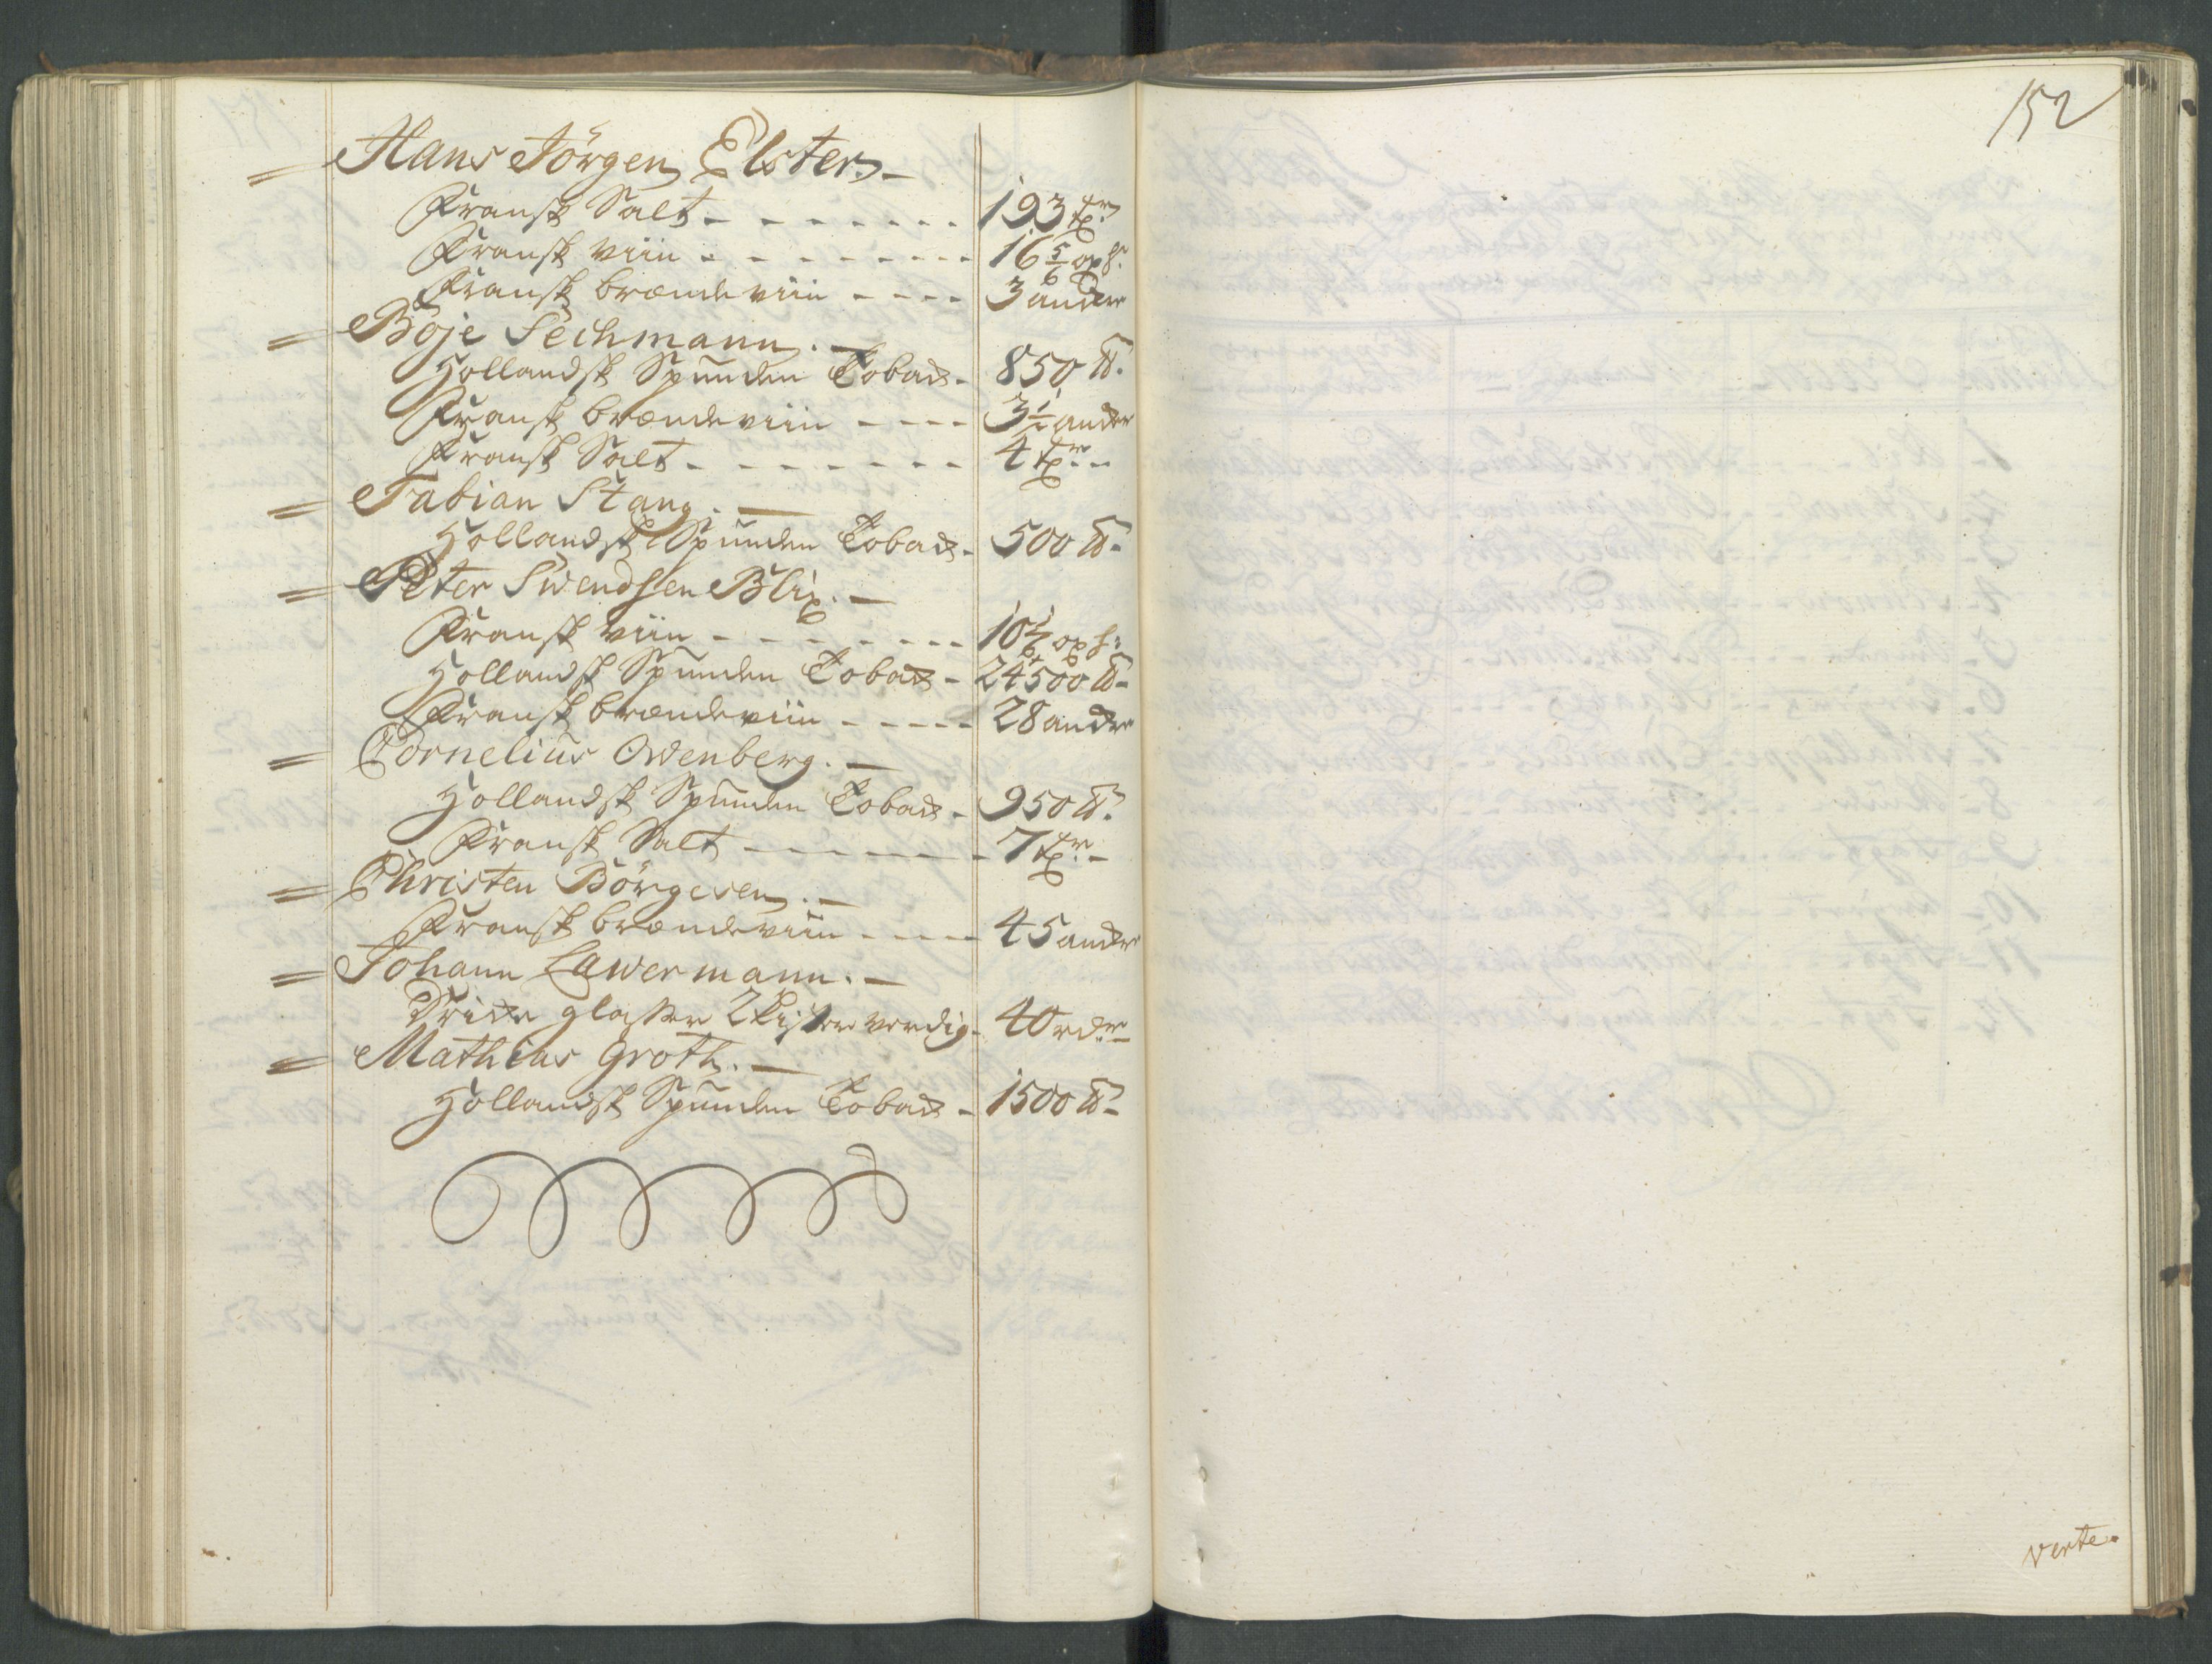 = Hans Jörgen Elster. -
Fransk Salt - - - - - - - 193 tr
Fransk viin - - - - - - - - 16 5/6 oxh:
Fransk brændeviin - - - - 3 ancker
= Böje Sechmann. -
Hollandsk Spunden Toback - 850 ℔.
Fransk brændeviin - - - - 3½ ancker
Fransk Salt - - - - - - - 4 tr - -
= Fabian Stang. -
Hollandsk Spunden Toback - 500 ℔ -
= Peter Swendsen Blix. -
Fransk viin - - - - - - - - 10 oxh:
Hollandsk Spunden Toback - 24500 ℔ -
Fransk brændeviin - - - - - 28 ancker
= Cornelius Owenberg. -
Hollandsk Spunden Toback - 950 ℔.
Fransk Salt - - - - - - - 7 tr. -
= Christen Börgesen. -
Fransk brændeviin - - - - 45 ancker
= Johann Lawermann. -
Dricke glasser 2 Kister verdig - 40 rdr -
= Mathias Groth. -
Hollandsk Spunden Toback - 1500 ℔ -
152
verte.